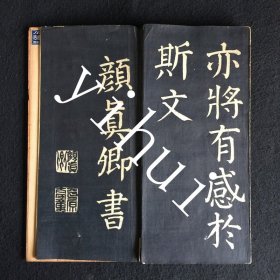 亦將有感於
斯文
顏真卿書